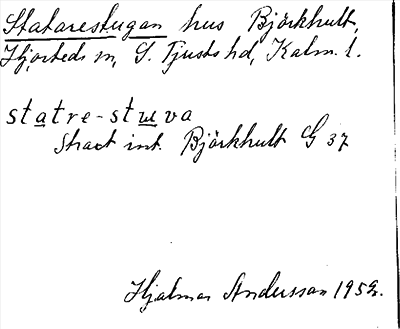 Statarestugan hus Björkhult,
Hjorteds sn, S. Tjusts hd, Kalm. l.
statre-stuva
Strax int. Björkhult G 37
Hjalmar Andersson 1959.